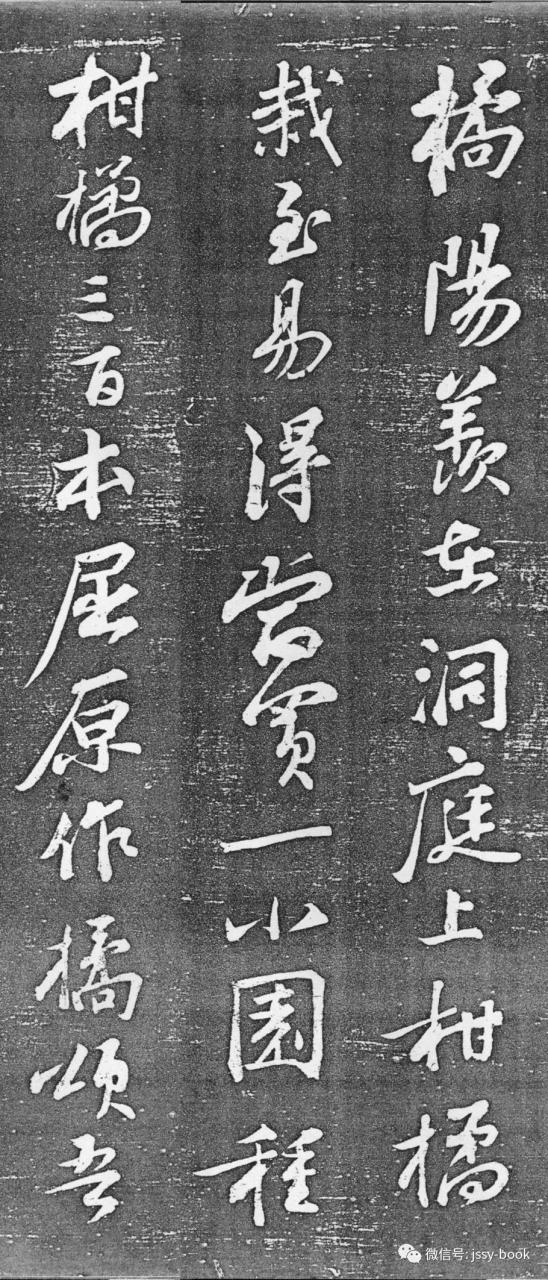 橘陽羨在洞庭上柑橘
栽至易得當買一小園種
柑橘三百本屈原作橘頌吾
微信号: jssy-book